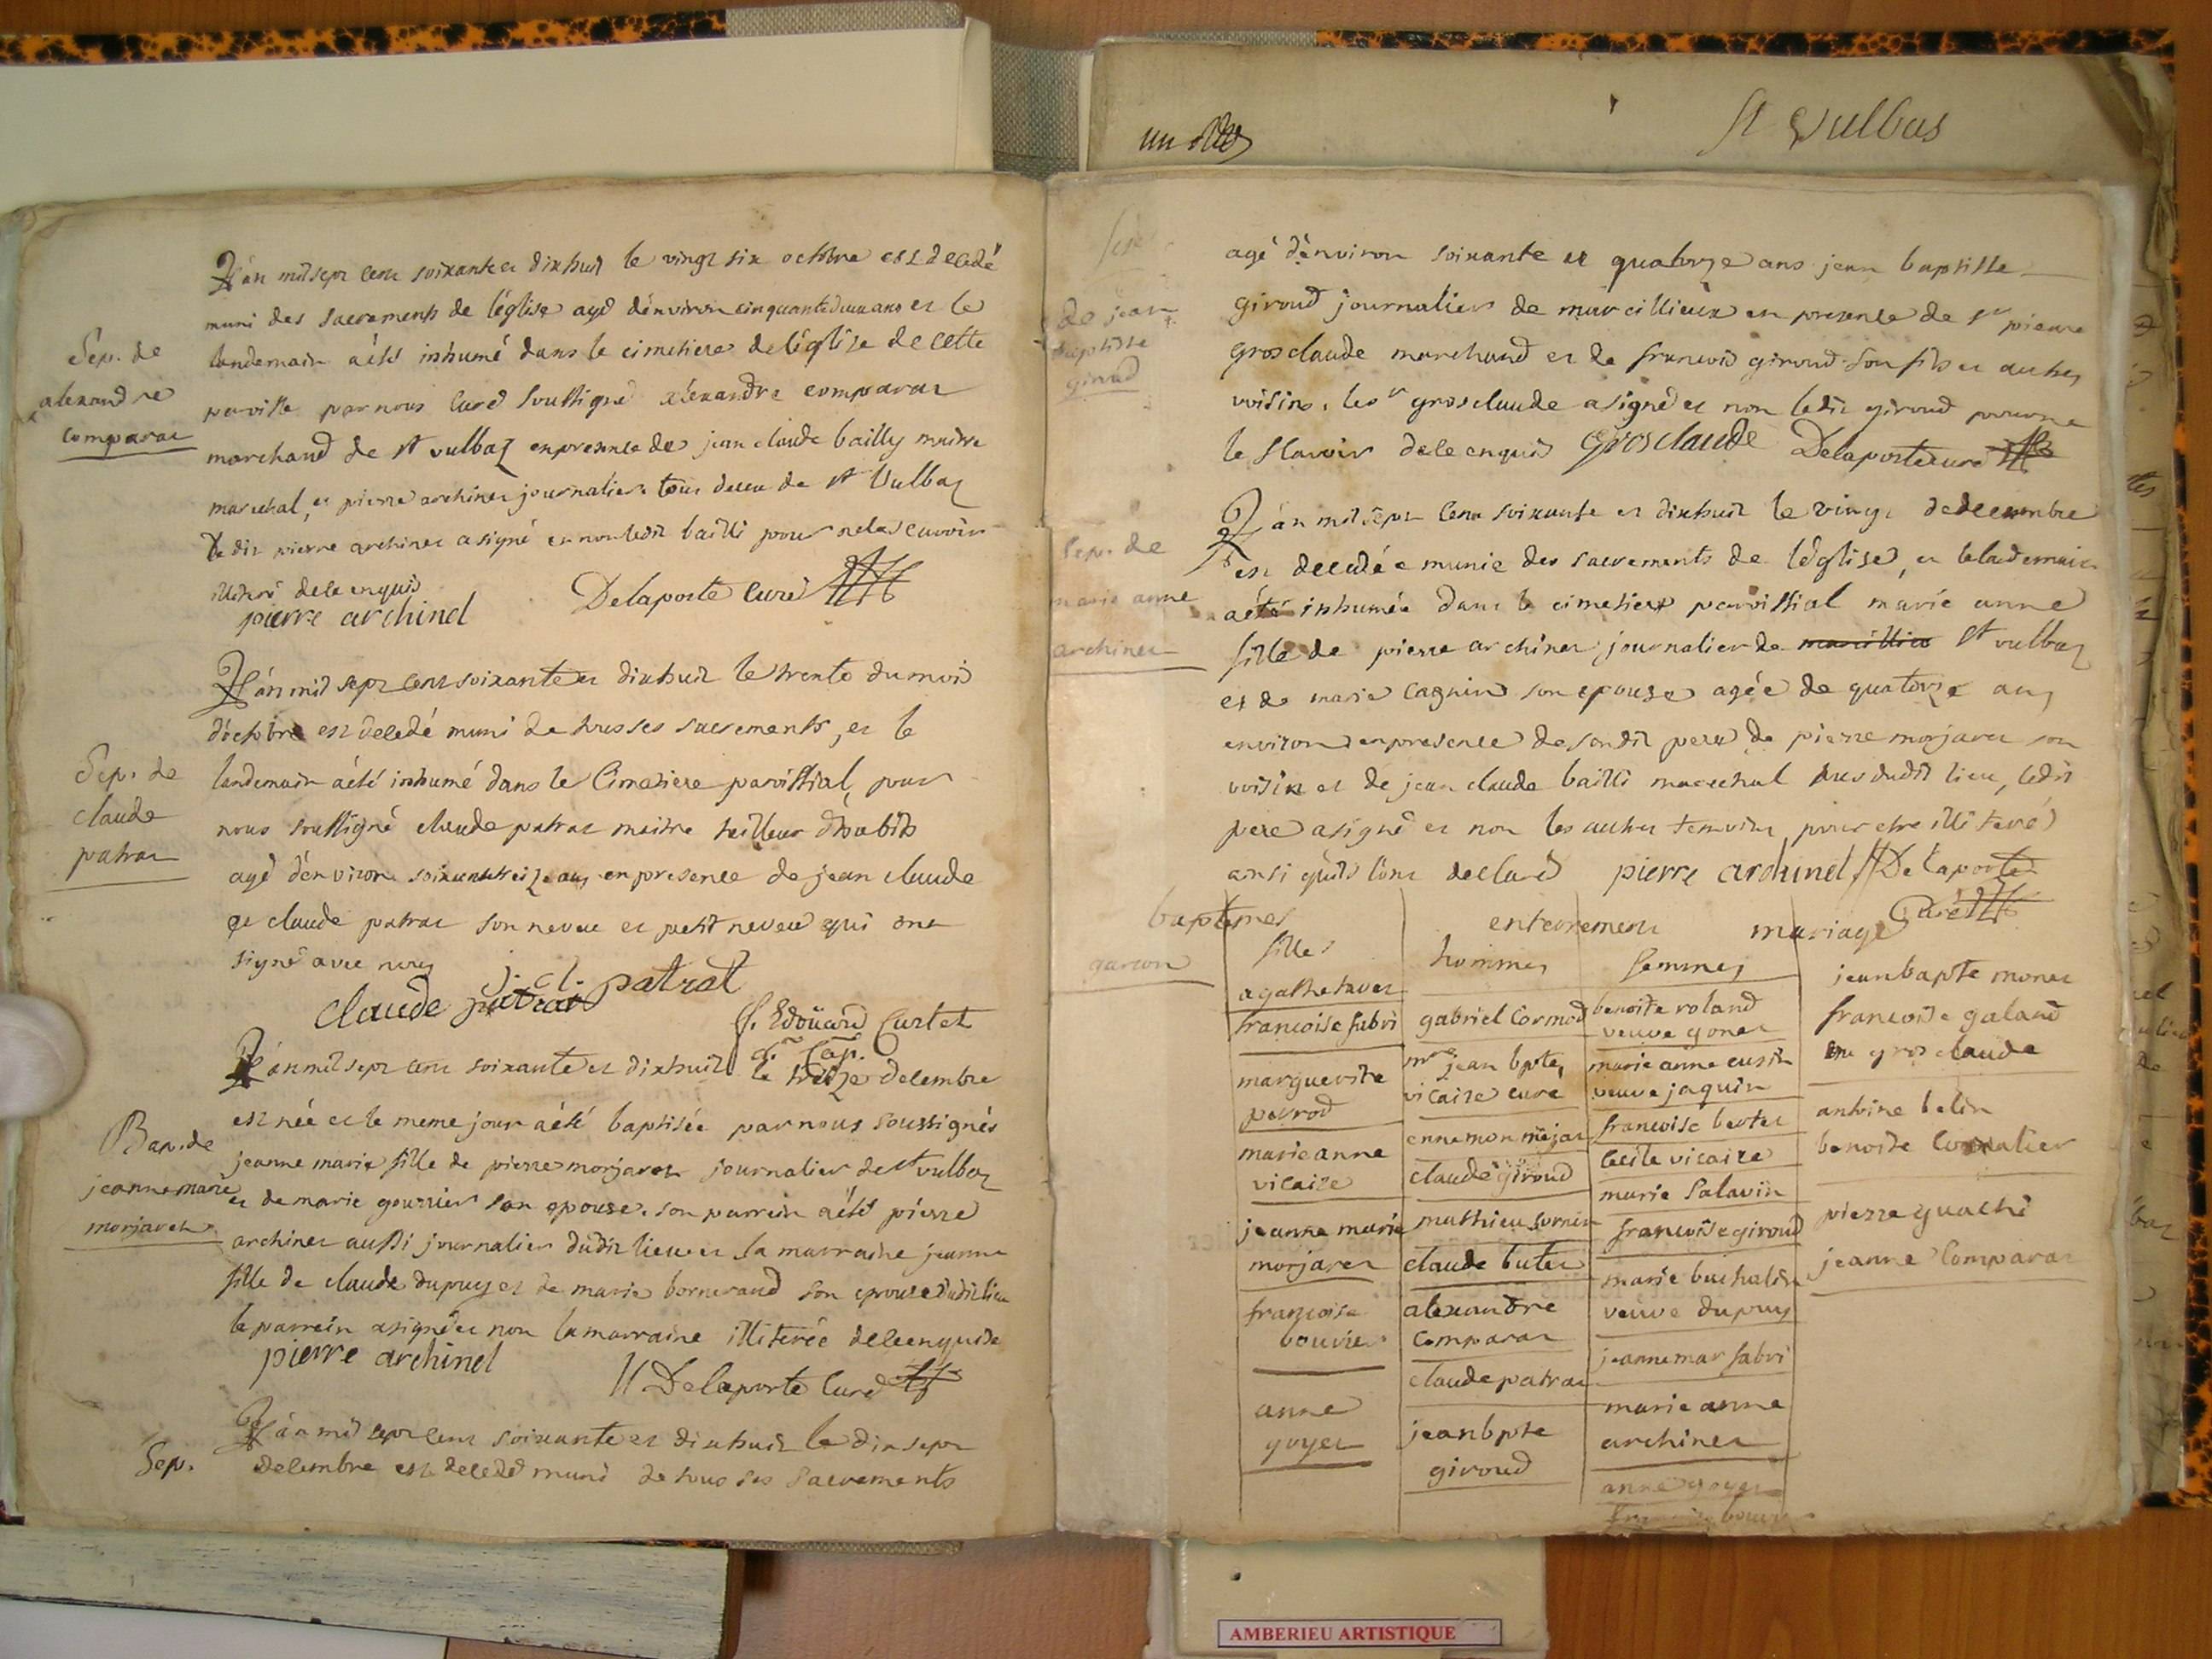 St Vulbas
L'an mil sept cent soixante et dixhuit le vingt six octobre est decedé
muni des sacrements de l'église agé d'environ cinquantedeux ans et le
landemain a été inhumé dans le cimetiere de l'église de cette
Sep. de
alexandre
comparat
paroisse par nous curé soussigné alexandre comparat
marchand de st vulbaz en presence de jean claude bailly maitre
marechal, et pierre archinet journalier tous deux de st Vulbaz
le dit pierre archinet a signé et non ledit bailli pour ne la scavoir
de ce enquis
pierre archinel Delaporte curé
L'an mil sept cent soixante et dixhuit le trente du moi
d'octobre est decedé muni de tous ses sacrements, et le
Sep. de
claude
patrat
landemain a été inhumé dans le Cimetiere paroissial, par
nous soussigné claude patrat maitre tailleur d'habits
agé d'environ soixantetreize ans en presence de jean claude
et claude patrat son neveu et petit neveu qui ont
signé avec nous
claude patrat j. cl. patrat
f. Edoüard Curtet
Cap.
L'an mil sept cent soixante et dixhuit le treize decembre
est née et le meme jour a été baptisée par nous soussignés
Bap. de
jeanne marie
morjaret
jeanne marie fille de pierre morjaret journalier de st vulbaz
et de marie gourrier son epouse. son parrein a été pierre
archinet aussi journalier dudit lieu et la marraine jeanne
fille de claude dupuy et de marie bornerand son epouse dudit lieu
le parrein a signé et non la marraine illiterée de ce enquise
pierre archinel Delaporte curé
Sep.
L'an mil sept cent soixante et dixhuit le dix sept
decembre est decedé muni de tous ses sacrements
de jean
baptiste
giroud
agé d'environ soixante et quatorze ans jean baptiste
giroud journalier de marcillieux en presence de sr pierre
grosclaude marchand et de francois giroud son fils et autres
voisins. le sr grosclaude a signé et non ledit giroud pour ne
le scavoir de ce enquis Grosclaude Delaporte curé
L'an mil sept cent soixante et dixhuit le vingt de decembre
Sep. de
marie anne
archinet
est decedée munie des sacrements de l'église, et le lademain
a été inhumée dans le cimetiere paroissial marie anne
fille de pierre archinet journalier de marcillieu st vulbaz
et de marie cagnin son epouse agée de quatorze ans
environ en presence de son dit pere de pierre morjaret son
voisin et de jean claude bailli marechal tous dudit lieu, ledit
pere a signé et non les autres temoins pour etre illiteré
ainsi qu'ils l'ont declaré pierre archinel Delaporte
Curé
baptemes enterrement mariage
garcon filles hommes femmes
agathe tavet
francoise fabri
marguerite
perrod
marie anne
vicaire
jeanne marie
morjaret
francoise
bouvier
anne
goyet
gabriel Cormod
mre jean bpte
vicaire curé
ennemon mejat
claude giroud
mathieu fornier
claude butet
alexandre
comparat
claude patrat
jean bpte
giroud
benoite roland
veuve gonet
marie anne cusin
veuve jaquin
francoise bertet
Cecile vicaire
marie Salavin
francoise giroud
marie buchalin
veuve dupuy
jeanne mar fabri
marie anne
archinet
anne goyet
jean bapte monet
francoise galand
grosclaude
antoine belin
benoite
pierre guachi
jeanne Comparat
AMBERIEU ARTISTIQUE